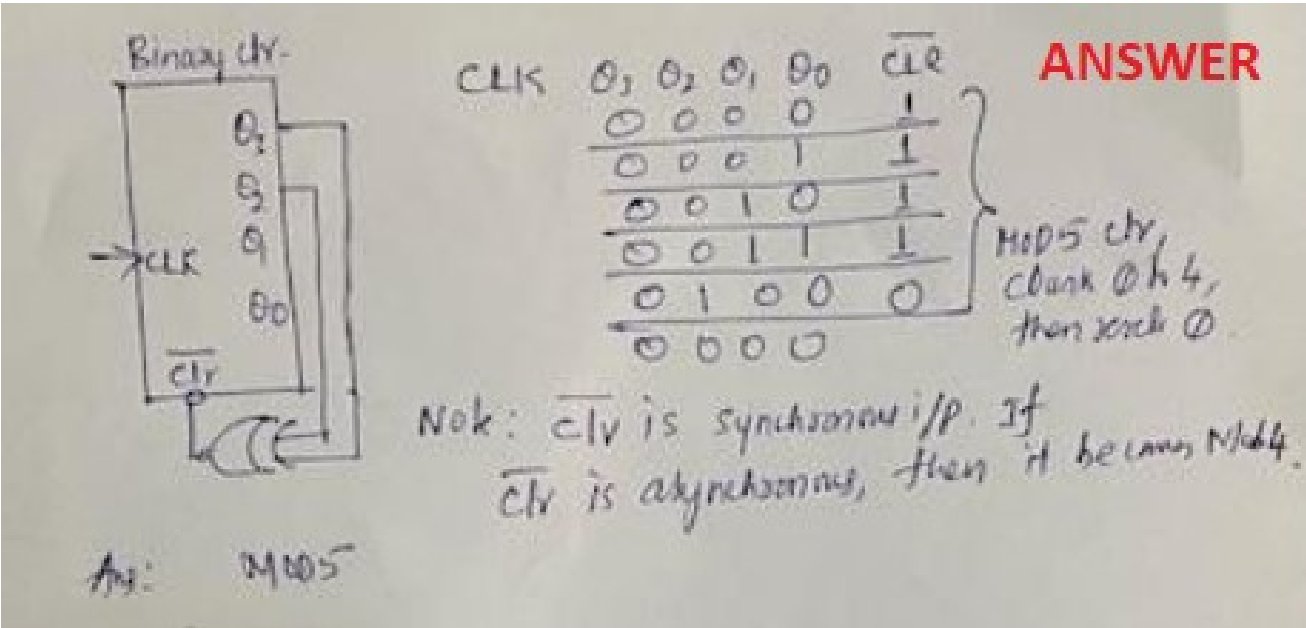 ANSWER
Binary ctr.
Q3
Q2
Q1
Q0
CLK
Clr
CLK Q3 Q2 Q1 Q0 CLR
0 0 0 0 1
0 0 0 1 1
0 0 1 0 1
0 0 1 1 1
0 1 0 0 0
0 0 0 0
MOD5 ctr,
0 4,
then 0
Note: Clr is synchronous i/p. If
Clr is asynchronous, then it becomes Mod4.
Ans: MOD5